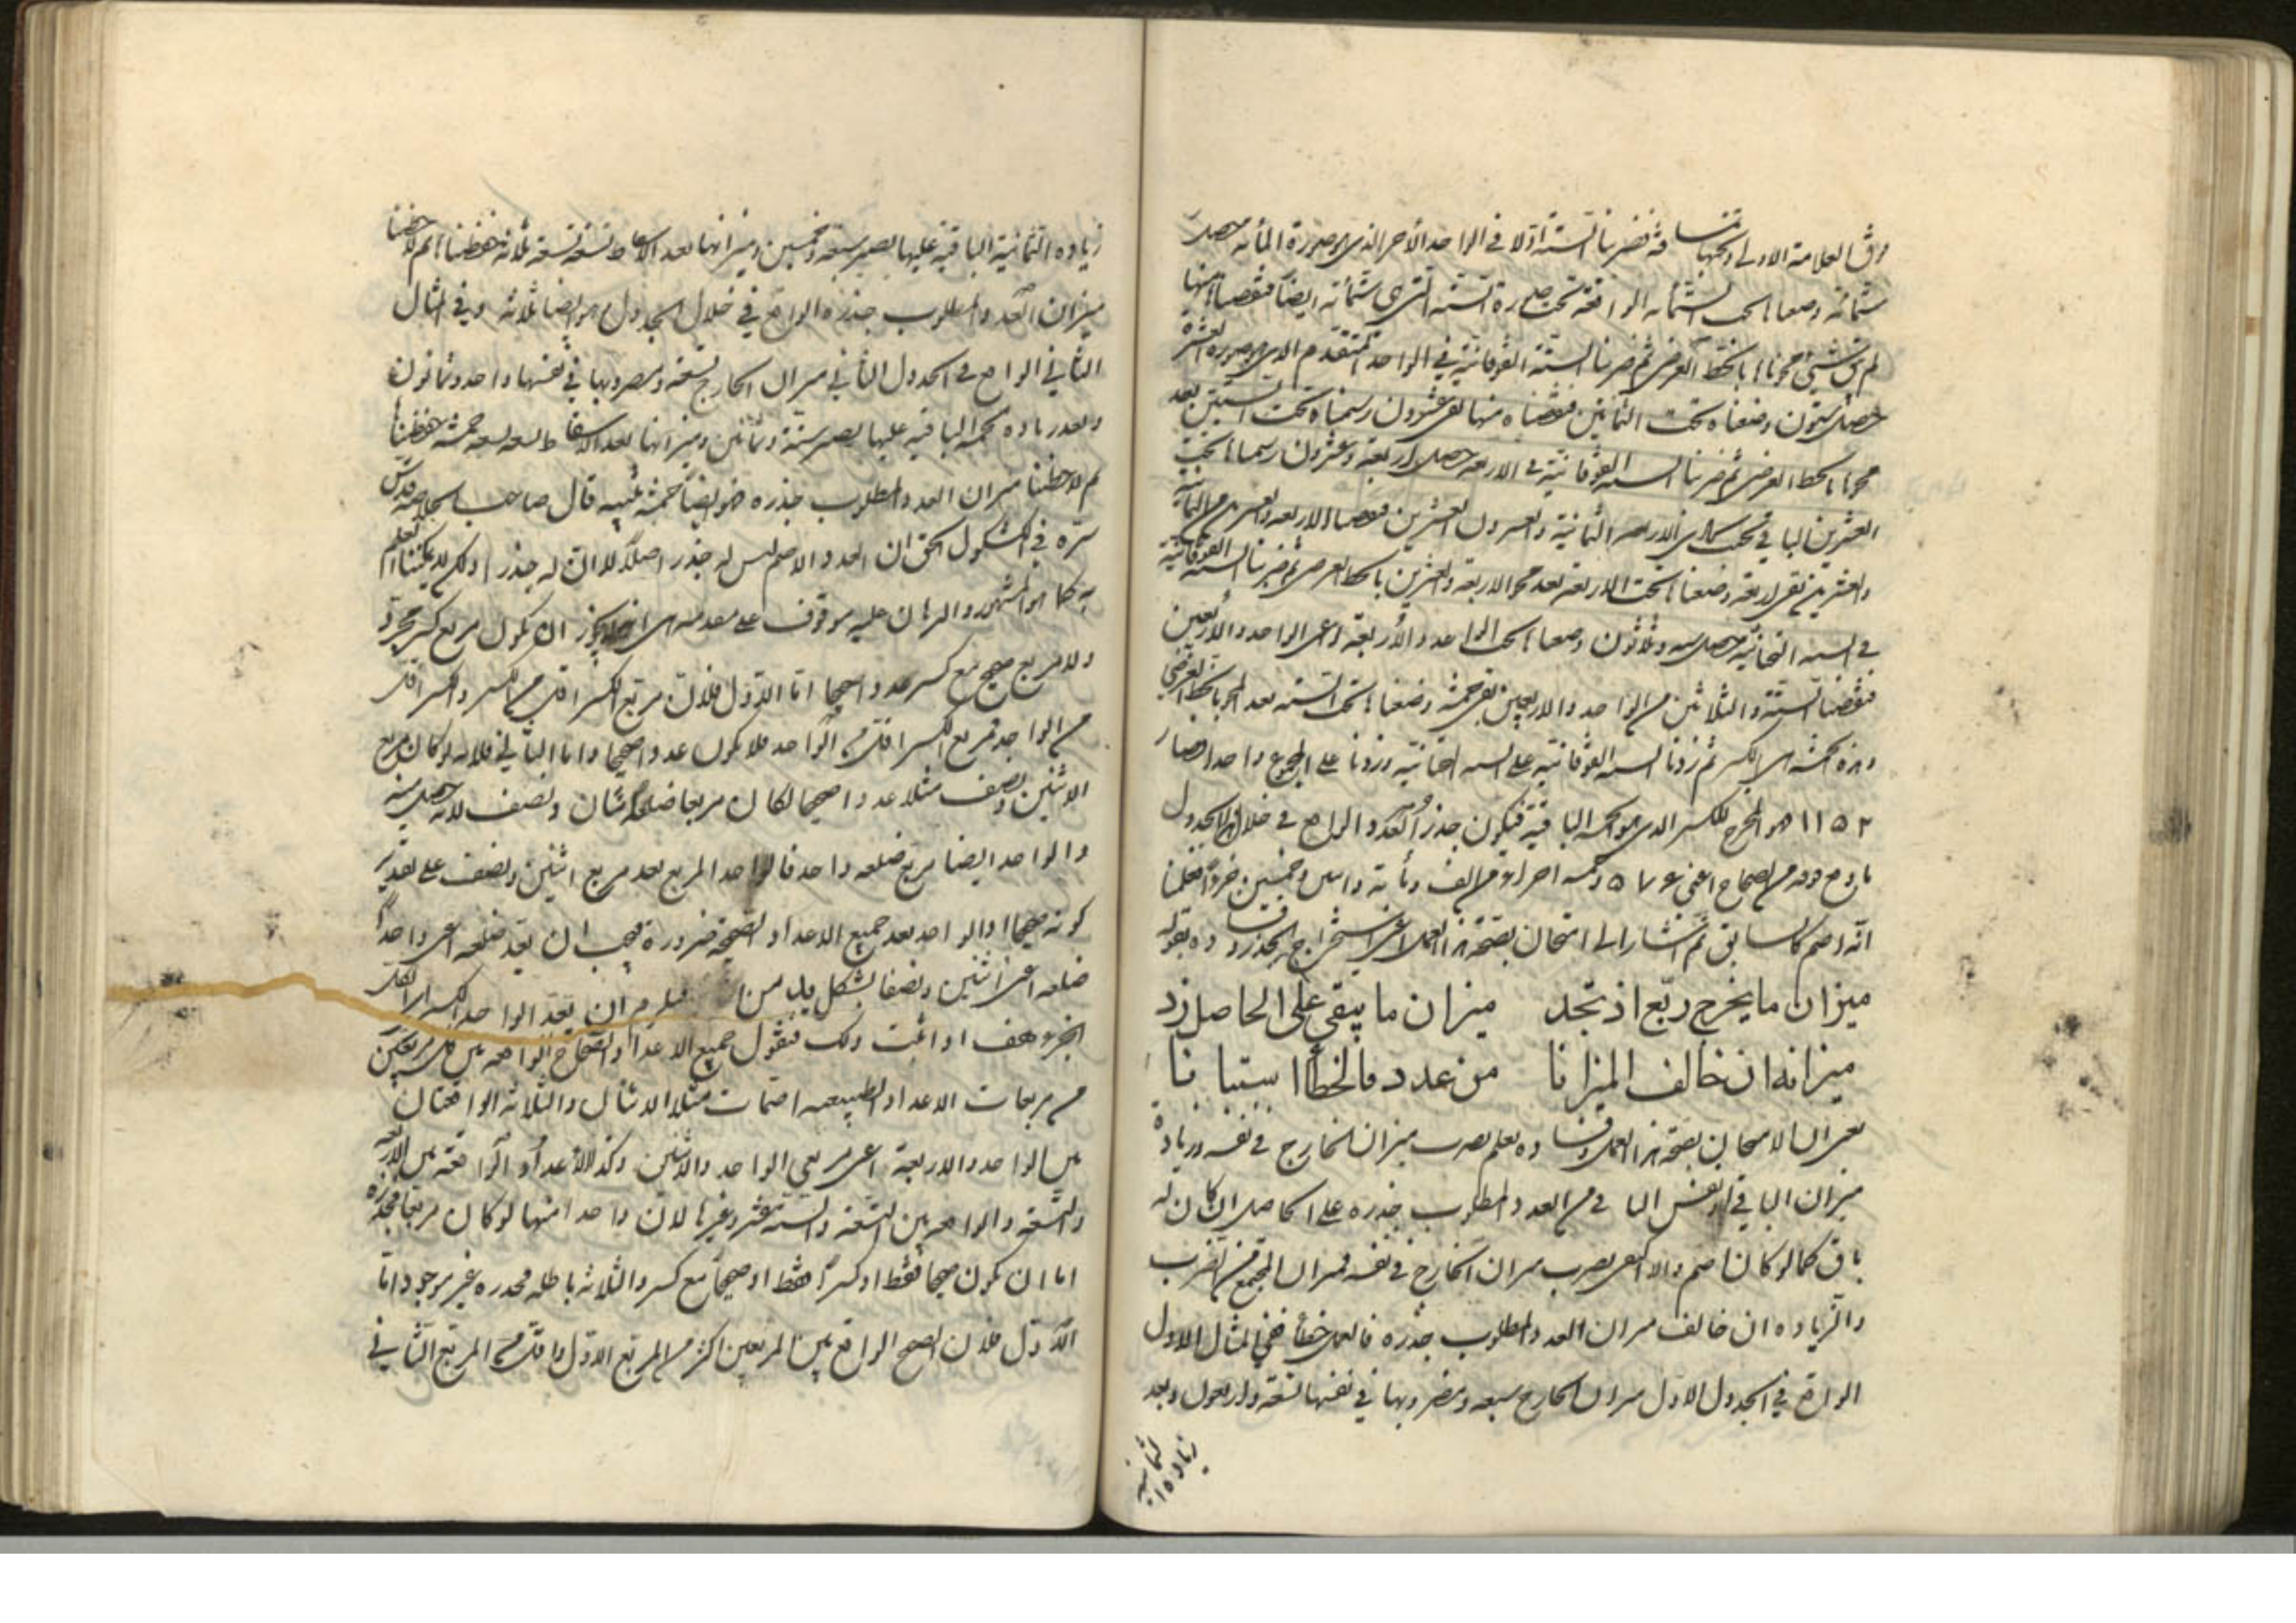 فوق العلامة الاولى وتحتها فضربنا الستة اولا في الواحد الأخر الذي هو صورة المأته حصل
ستمائة وضعناها تحت الستمأئه الواقعة تحت الستة التي هي ستمأته ايضا فنقصناها منها
لم يبق شيئ محوناها بالخط العرضى ثم ضربنا الستة الفوقانية في الواحد المتقدم الذي هو صورة العشرة
حصل ستون وضعناه تحت الثمانين فنقصناه منها بقى عشرون رسمناه تحت الستين بعد
محوناها بالخط العرضى ثم ضربنا السته الفوقانية في الاربعه حصل اربعة وعشرون رسمناها تحت
العشرين الباقي الاربعه الثمانية والعشرون العشرين فنقصنا الاربعه والعشرين من الثمانية
والعشرين بقى اربعة وضعناها تحت الاربعة بعد محو الاربعة والعشرين بالخط العرضى ثم ضربنا السته الفوقانية
في السته التحتانية حصل سته وثلاثون وضعناها تحت الواحد والأربعة اعنى الواحد والاربعين
فنقصنا الستة والثلاثين من الواحد والاربعين بقى خمسة وضعناها تحت السته بعد المحو بالخط العرضي
وهذه الخمسة هى الكسر ثم زدنا السته الفوقانية على السته التحتانية وزدنا على المجموع واحدا صار
١١٥٣ هو المخرج للكسر الذي هو الخمسه الباقية فيكون جذر العدد الواقع في خلال الجدول
من الصحاح اعنى ٥٧٦ وخمسه اجزاء من الف ومأية وخمسين جزءا فعلمنا
انه اصم كالسابق ثم اشار الى امتحان صحة هذا العمل اعنى استخراج الجذر بقوله
ميزان ما يخرج ربّع اذ تجد ميزان ما يبقى على الحاصل زد
ميزانه ان خالف الميزانا من عدد فالخطأ استبانا
يعنى ان الامتحان بصحة هذا العمل بضرب ميزان الخارج في نفسه وزيادة
ميزان الباقي من العدد المطلوب جذره على الحاصل ان كان له
باق كما لو كان اصم والا اكتفى بضرب ميزان الخارج في نفسه فميزان المجتمع من الضرب
والزياده ان خالف ميزان العدد المطلوب جذره فالعمل خطأ ففي المثال الاول
الواقع في الجدول الاول ميزان الخارج سبعه ومضروبها في نفسها تسعة واربعون وبعد
زيادة الثمانية
زياده الثمانية الباقية عليها يصير سبعة وخمسين وميزانها بعد الاسقاط تسعة تسعة ثلاثة حفظناها ثم لاحظنا
ميزان العدد المطلوب جذره الواقع في خلال الجدول هو ايضا ثلاثه وفي المثال
الثاني الواقع في الجدول الثاني ميزان الخارج تسعة ومضروبها في نفسها واحد وثمانون
وبعد زياده الخمسه الباقيه عليها يصير ستة وثمانين وميزانها بعد الاسقاط تسعه تسعه خمسة حفظناها
ثم لاحظنا ميزان العدد المطلوب جذره هو ايضا خمسة تنبيه قال صاحب الخلاصه قدس
سره في الكشكول الحق ان العدد الاصم ليس له جذر اصلا لا ان له جذرا ولكن لا يمكننا العلم
به كما هو المشهور والبرهان عليه موقوف على مقدمه هى انه لا يجوز ان يكون مربع كسر مجرد
ولا مربع صحيح مع كسر عددا صحيحا اما الاول فلان مربع الكسر اقل من الكسر والكسر اقل
من الواحد فمربع الكسر اقل من الواحد فلا يكون عددا صحيحا واما الثاني فلانه لو كان مربع
الاثنين ونصف مثلا عددا صحيحا لكان مربعا ضلعه اثنان ونصف لانه حصل منه
والواحد ايضا مربع ضلعه واحد فالواحد المربع يعد مربع اثنين ونصف على تقدير
كونه صحيحا اذ الواحد يعد جميع الاعداد الصحيحة ضرورة فيجب ان يعد ضلعه اعنى واحدا
ضلعه اعنى اثنين ونصفا بشكل يد من فيلزم ان يعد الواحد الكسر اى الكل
الجزء هف اذا ثبت ذلك فنقول جميع الاعداد الصحاح الواقعه بين كل مربعين
من مربعات الاعداد الطبيعيه اصمات مثلا الاثنان والثلاثه الواقعتان
بين الواحد والاربعة اعنى مربعي الواحد والاثنين وكذا الاعداد الواقعة بين الاربعه
والتسعة والواقعه بين التسعة والستة عشر وغيرها لان واحدا منها لو كان مربعا فجذره
اما ان يكون صحيحا فقط او كسرا فقط او صحيحا مع كسر والثلاثه باطله فجذره غير موجود اما
الاول فلان الصحيح الواقع بين المربعين اكثر من المربع الاول واقل من المربع الثاني في